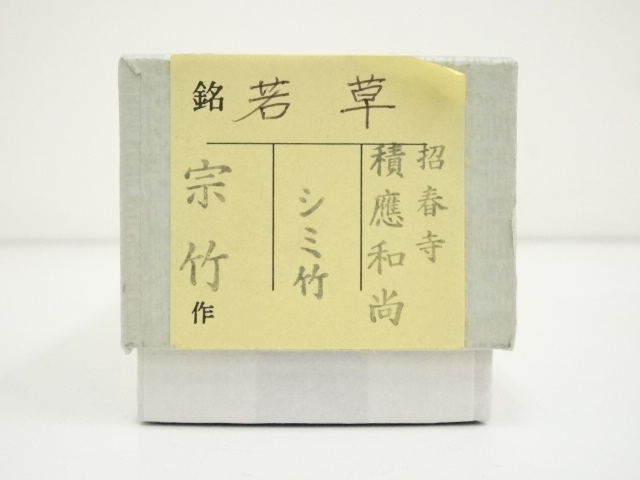 銘 若草
招春寺
積應和尚
シミ竹
宗竹作